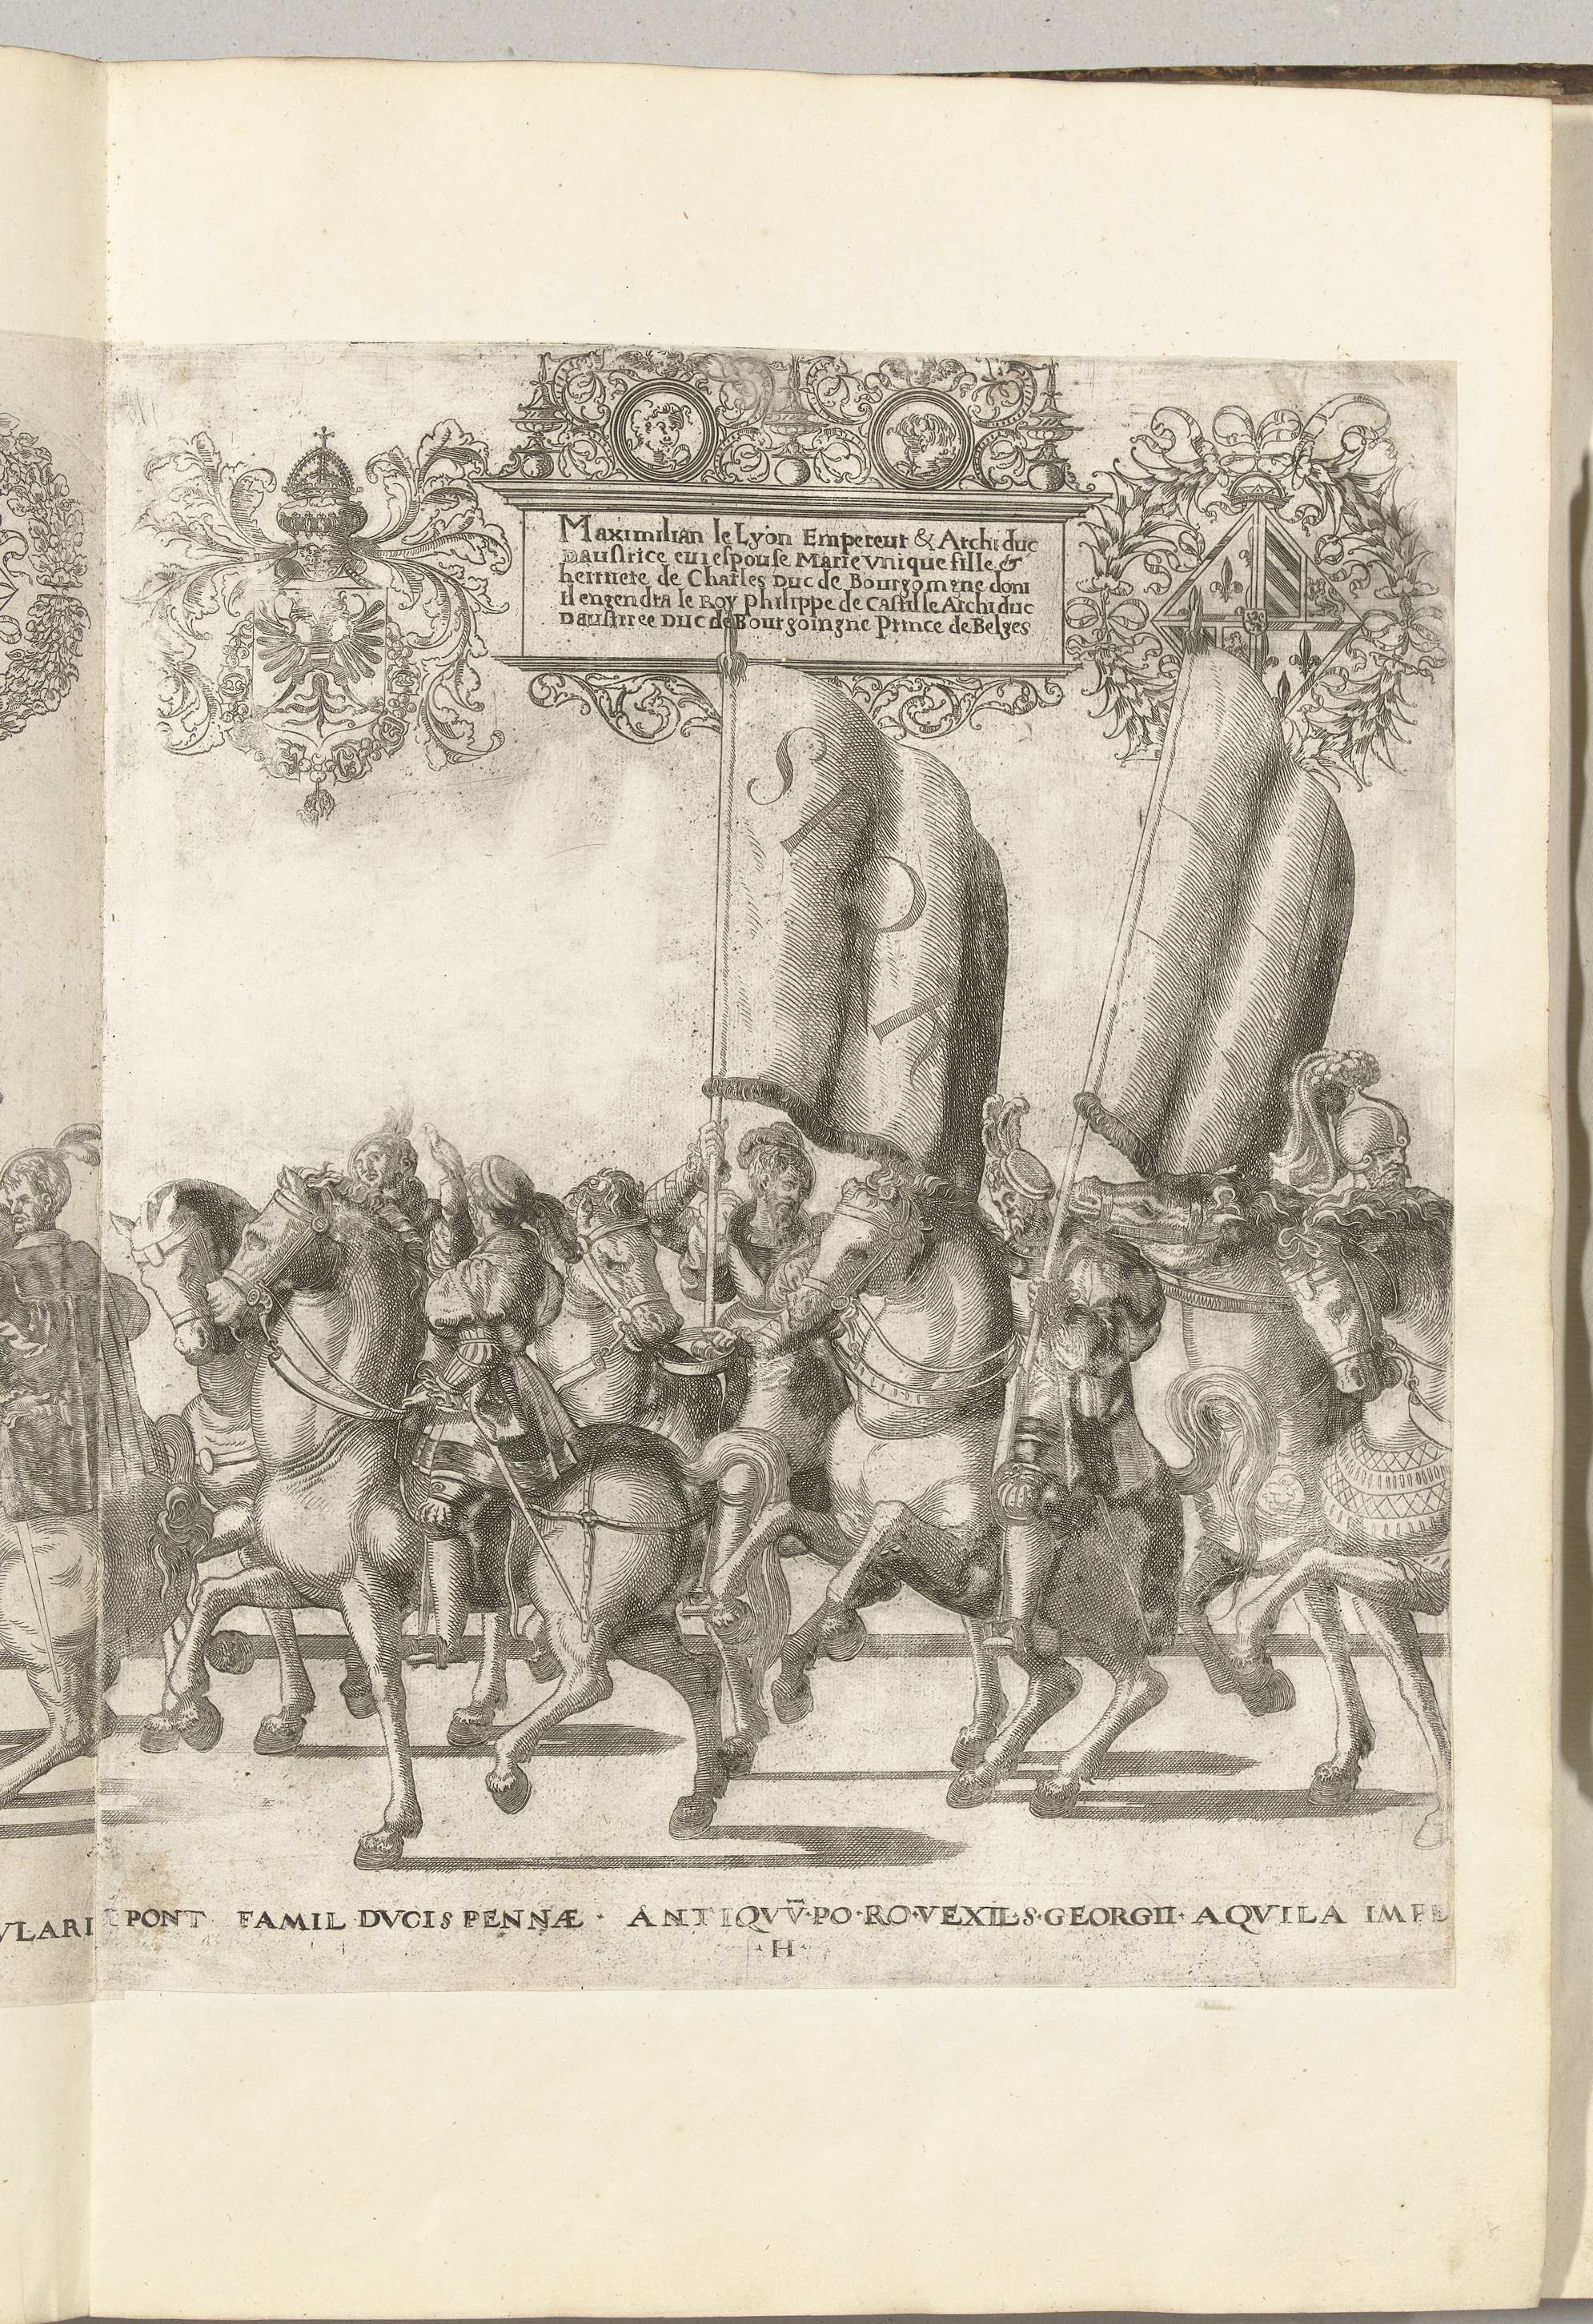 Maximilian le Lyon Empereur & Archiduc
Daustrice eut espouse Marie vnique fille &
herritiere de Charles Duc de Bourgomgne dont
il engendra le Roy philippe de Castille Archiduc
Daustrice Duc de Bourgoingne Prince de Belges
S P Q R
VLARI PONT FAMIL DVCIS PENNÆ · ANTIQVV̄·PO·RO·VEXIL·S·GEORGII· AQVILA IMPE
·H·